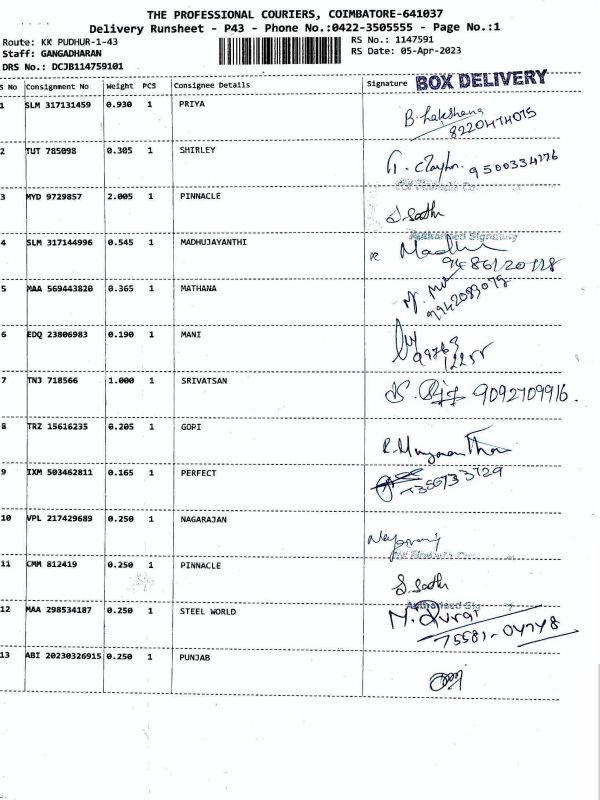 THE PROFESSIONAL COURIERS, COIMBATORE-641037
Delivery Runsheet - P43 - Phone No.:0422-3505555 - Page No.:1
Route: KK PUDHUR-1-43
RS No.: 1147591
Staff: GANGADHARAN
RS Date: 05-Apr-2023
DRS No.: DCJB114759101
S No Consignment No Weight PCS Consignee Details Signature BOX DELIVERY
1 SLM 317131459 0.930 1 PRIYA
8220474075
2 TUT 785098 0.305 1 SHIRLEY
9500334776
3 MYD 9729857 2.005 1 PINNACLE
S. Sathi
Authorised Signatory
4 SLM 317144996 0.545 1 MADHUJAYANTHI
Madhu
5 MAA 569443820 0.365 1 MATHANA
6 EDQ 23806983 0.190 1 MANI
7 TNJ 718566 1.000 1 SRIVATSAN
9092709916.
8 TRZ 15616235 0.205 1 GOPI
9 IXM 503462811 0.165 1 PERFECT
10 VPL 217429689 0.250 1 NAGARAJAN
11 CMM 812419 0.250 1 PINNACLE
S. Sathi
Authorised
12 MAA 298534187 0.250 1 STEEL WORLD
M. Durai
75581-04748
13 ABI 20230326915 0.250 1 PUNJAB